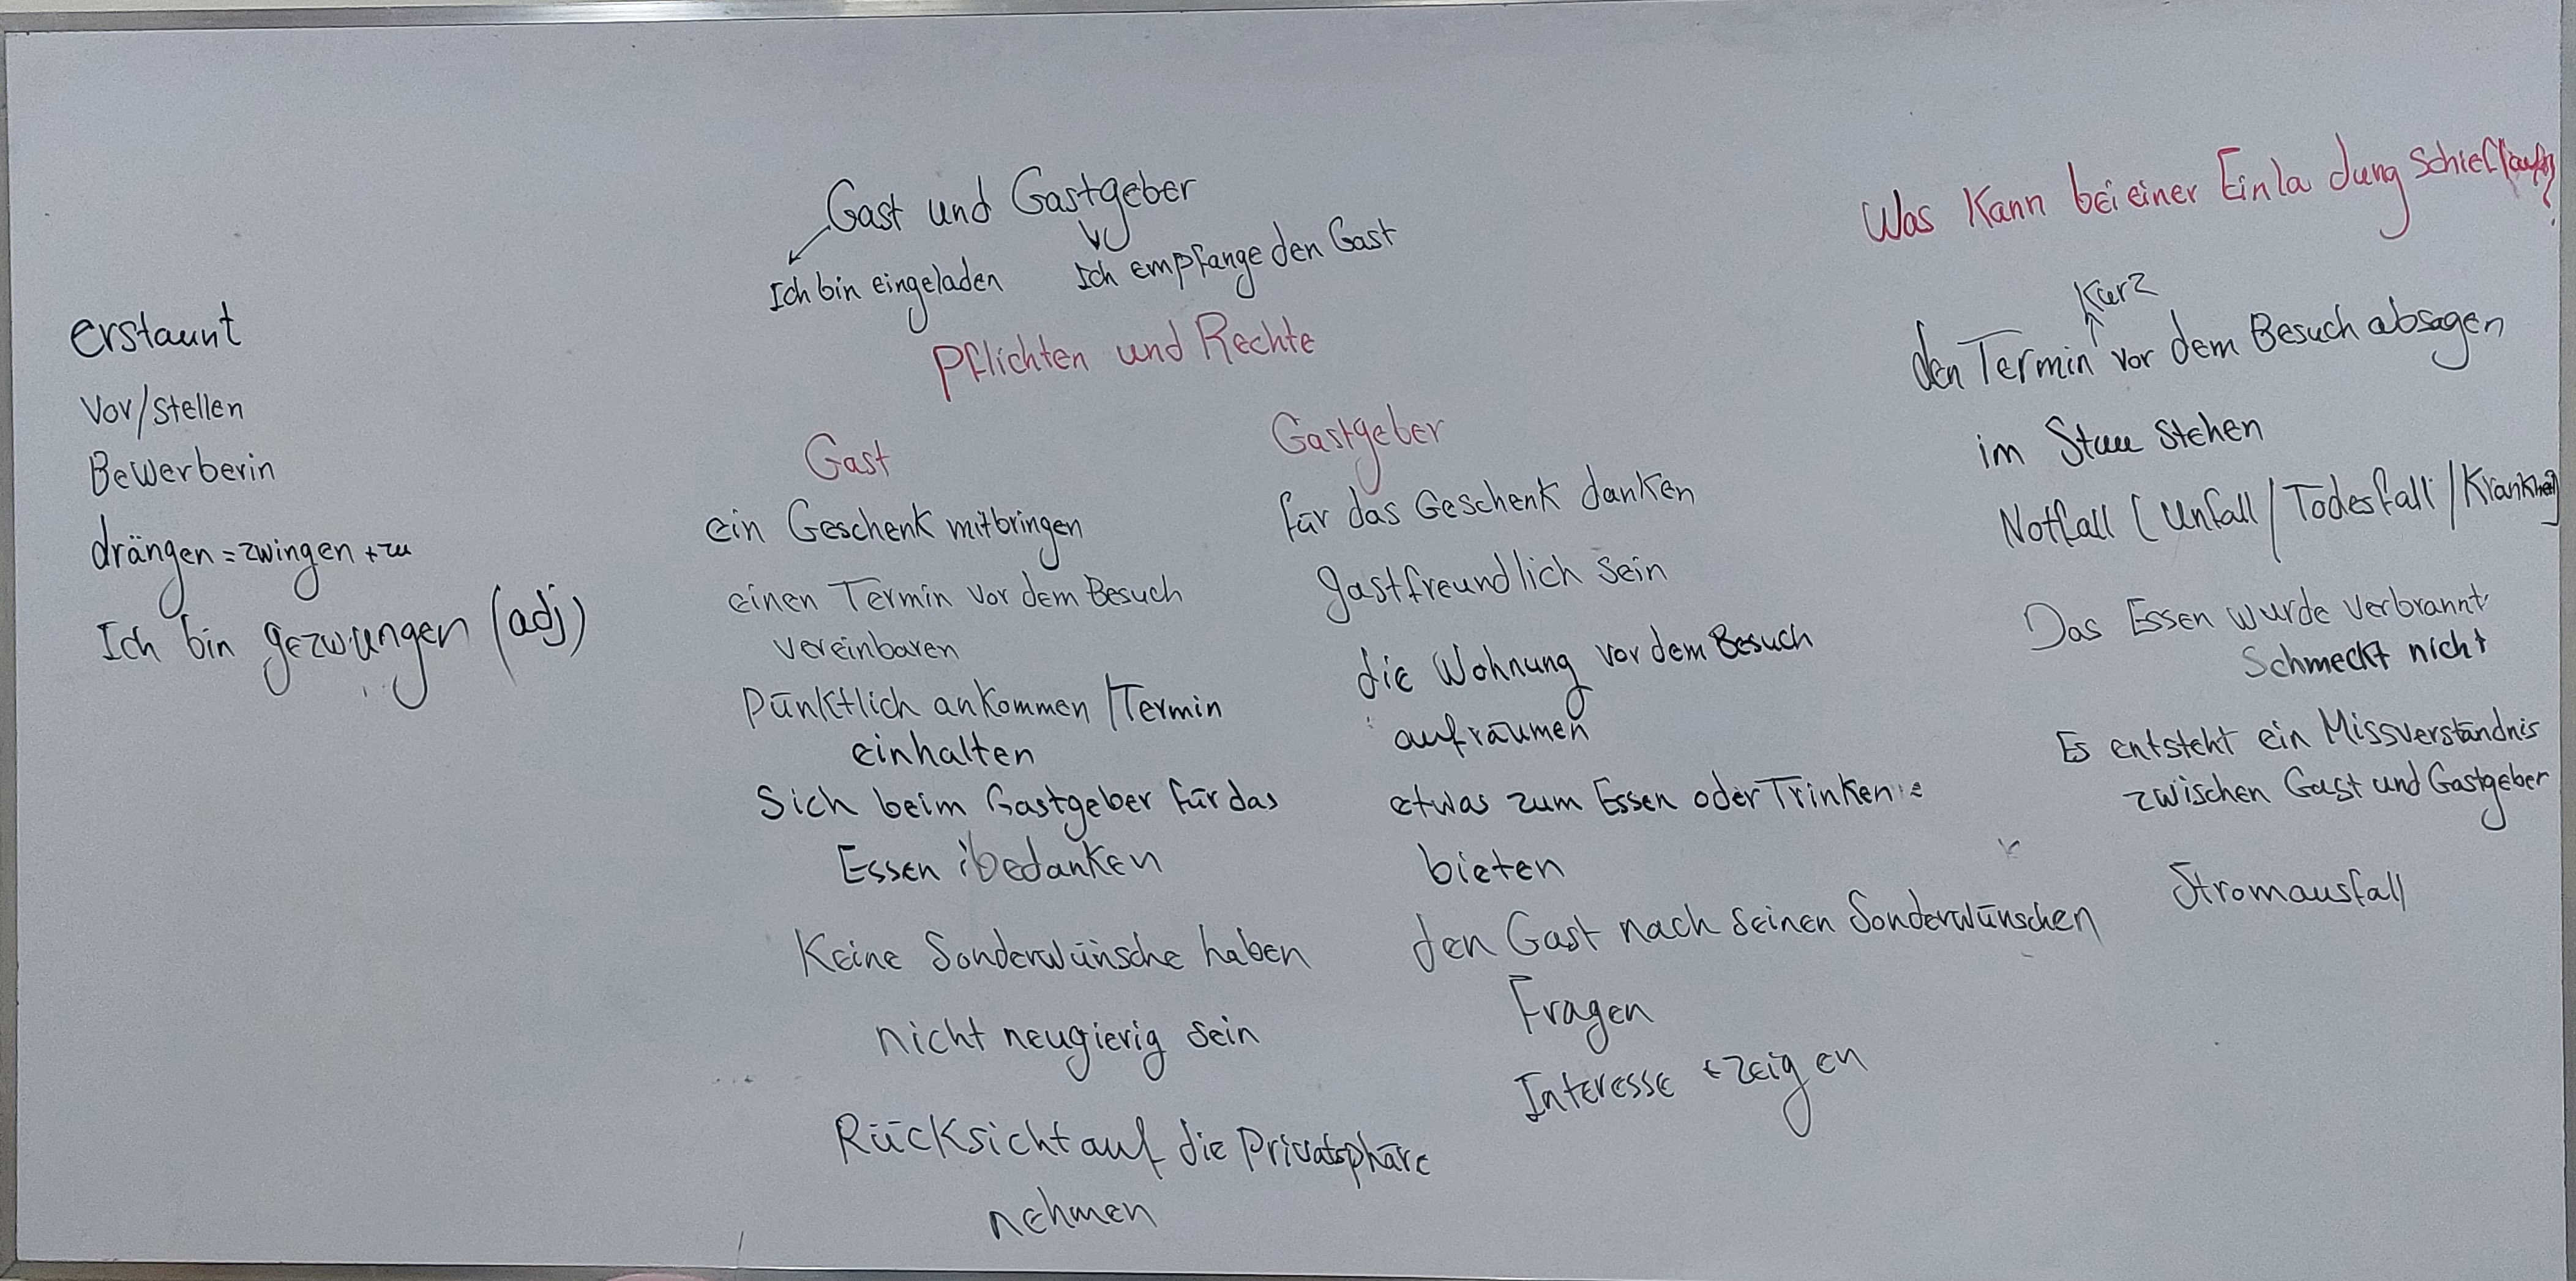 erstaunt
Vor/stellen
Bewerberin
drängen = zwingen + zu
Ich bin gezwungen (adj)
Gast und Gastgeber
Ich bin eingeladen
Ich empfange den Gast
Pflichten und Rechte
Gast
ein Geschenk mitbringen
einen Termin vor dem Besuch
vereinbaren
Pünktlich ankommen / Termin
einhalten
Sich beim Gastgeber für das
Essen bedanken
Keine Sonderwünsche haben
nicht neugierig sein
Rücksicht auf die Privatsphäre
nehmen
Gastgeber
für das Geschenk danken
gastfreundlich sein
die Wohnung vor dem Besuch
aufräumen
etwas zum Essen oder Trinken
bieten
den Gast nach seinen Sonderwünschen
Fragen
Interesse zeigen
Was Kann bei einer Einladung schieflaufen?
Kurz
den Termin vor dem Besuch absagen
im Stau stehen
Notfall (Unfall / Todesfall / Krankheit)
Das Essen wurde verbrannt
Schmeckt nicht
Es entsteht ein Missverständnis
zwischen Gast und Gastgeber
Stromausfall